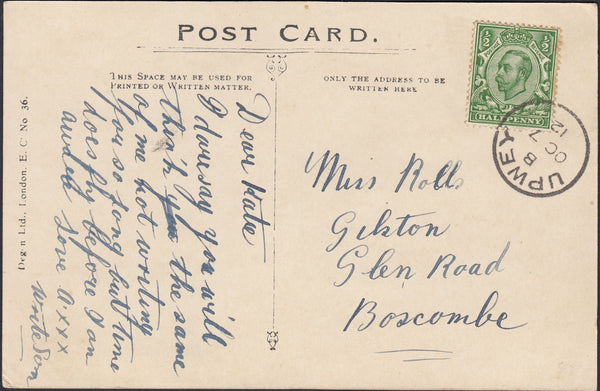 POST CARD.
THIS SPACE MAY BE USED FOR
PRINTED OR WRITTEN MATTER.
ONLY THE ADDRESS TO BE
WRITTEN HERE
Dear Kate
I daresay you will
think you the same
of me not writing
for so long but time
does fly before I am
love a xxx
write soon
Miss Rolls
Gilston
Glen Road
Boscombe
½ ½
HALFPENNY
UPWEY
B
OC 7
12
Degen Ltd., London, E. C No 36.